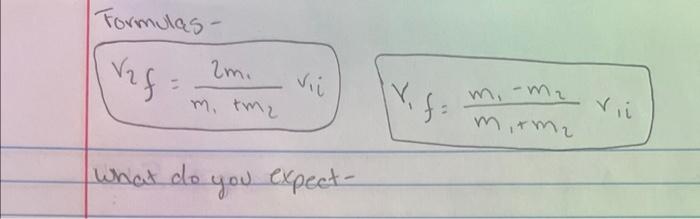 Formulas-
v2f = 2m1 / m1 + m2 v1i
v1f = m1 - m2 / m1 + m2 v1i
what do you expect-